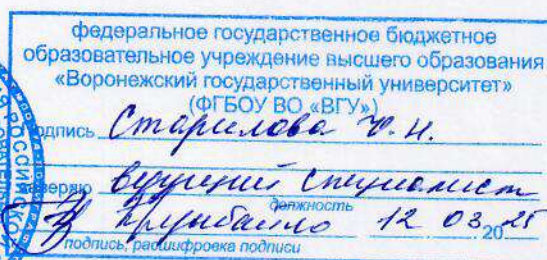 федеральное государственное бюджетное
образовательное учреждение высшего образования
«Воронежский государственный университет»
(ФГБОУ ВО «ВГУ»)
подпись Старилова
заверяю ведущий специалист
должность
12 03 2025
подпись, расшифровка подписи